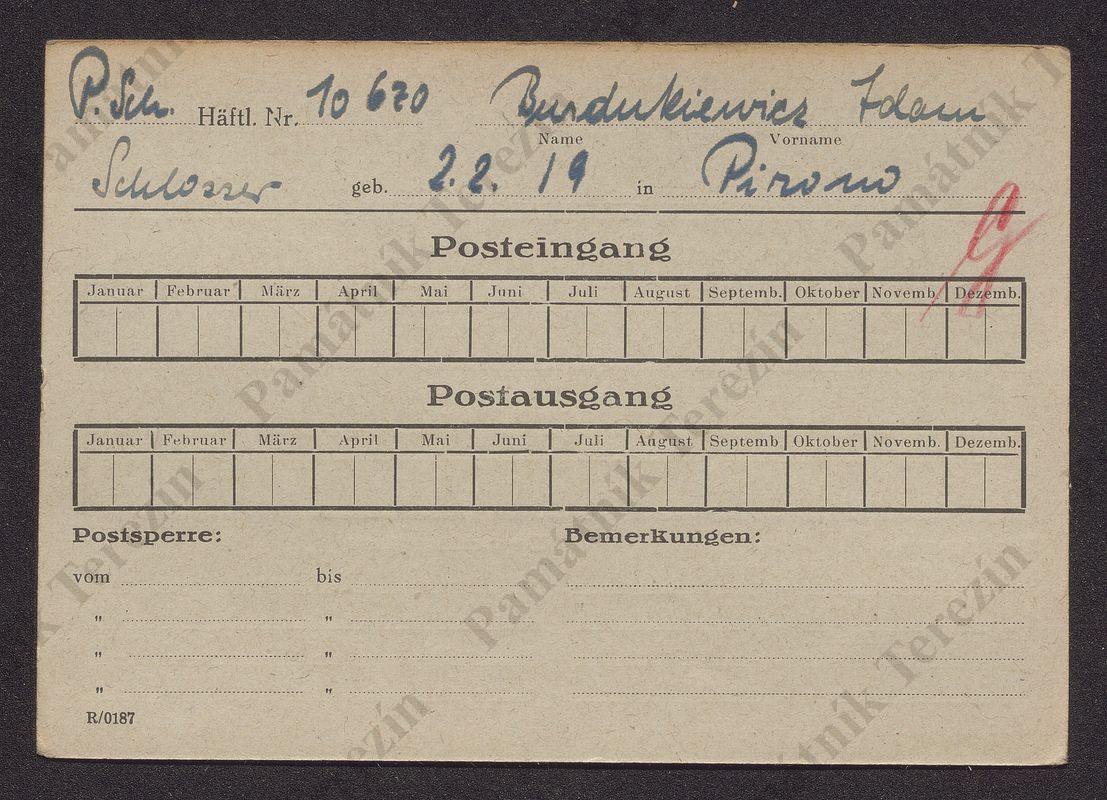 P. Sch. Häftl. Nr. 10 670 Burdukiewicz Adam
Name Vorname
Schlosser geb. 2. 2. 19 in Pirono
Posteingang
Januar Februar März April Mai Juni Juli August Septemb. Oktober Novemb. Dezemb.
Postausgang
Januar Februar März April Mai Juni Juli August Septemb Oktober Novemb. Dezemb.
Postsperre: Bemerkungen:
vom bis
" "
" "
" "
R/0187
Památník Terezín